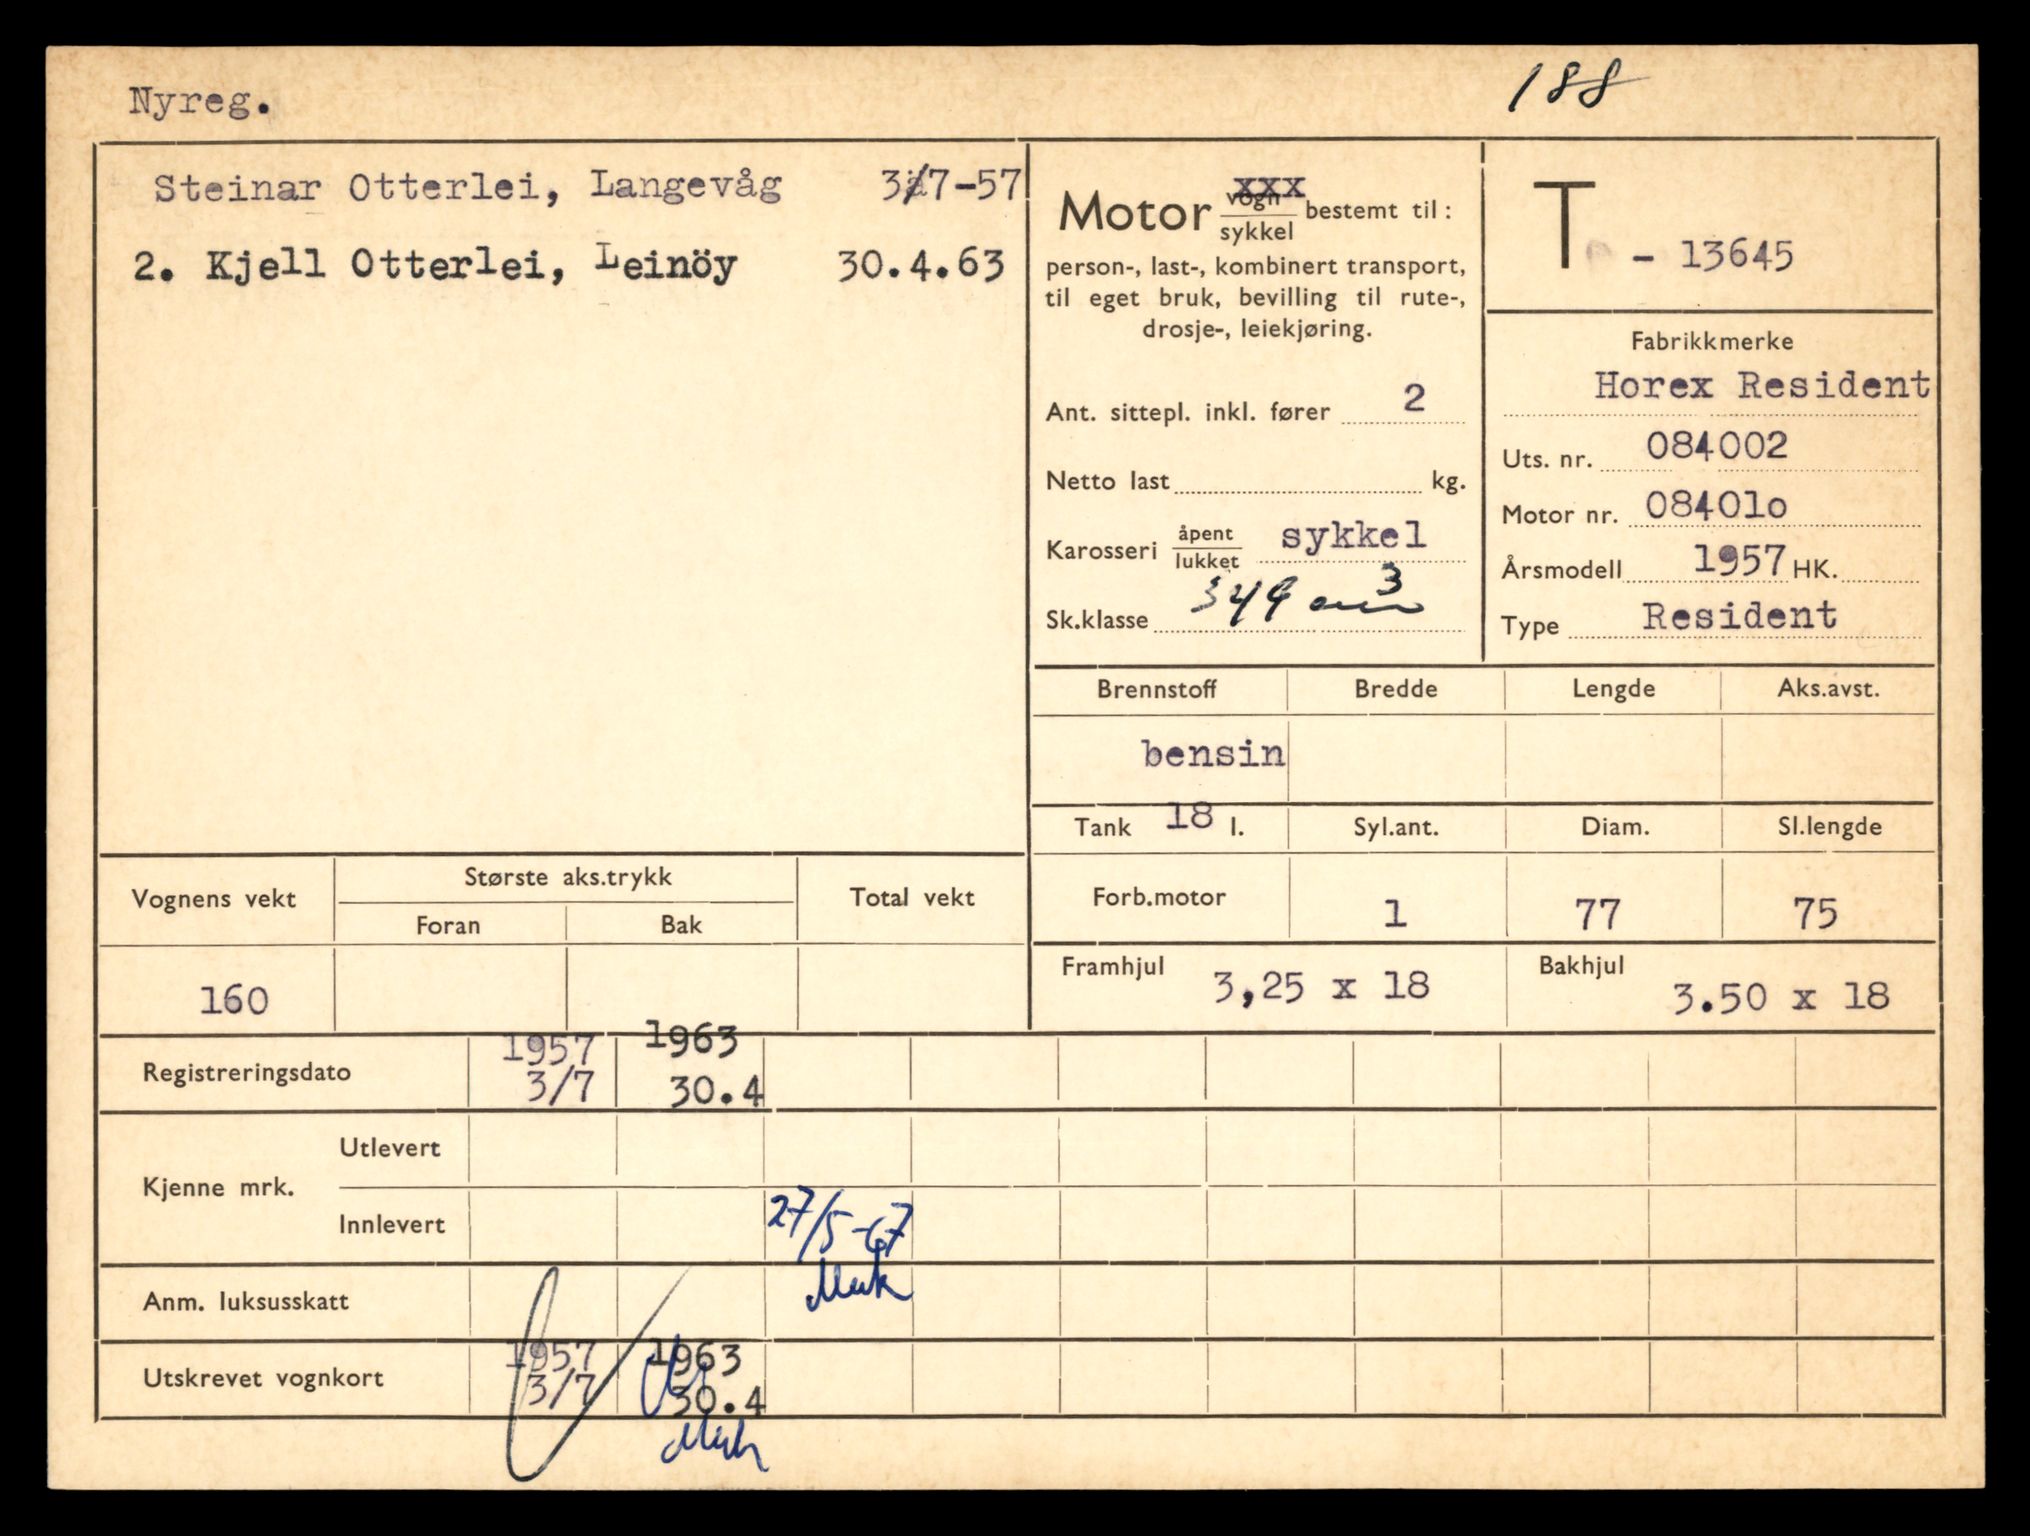 Nyreg.
188
Steinar Otterlei, Langevåg 3/7-57
2. Kjell Otterlei, Leinöy 30.4.63
Motor vogn/sykkel bestemt til:
xxx
person-, last-, kombinert transport,
til eget bruk, bevilling til rute-,
drosje-, leiekjøring.
Ant. sittepl. inkl. fører 2
Netto last kg.
Karosseri åpent/lukket sykkel
Sk.klasse 349 cm3
T - 13645
Fabrikkmerke
Horex Resident
Uts. nr. 084002
Motor nr. 08401o
Årsmodell 1957 HK.
Type Resident
Brennstoff Bredde Lengde Aks.avst.
bensin
Tank 18 l. Syl.ant. Diam. Sl.lengde
Forb.motor 1 77 75
Framhjul 3,25 x 18 Bakhjul 3.50 x 18
Vognens vekt Største aks.trykk Total vekt
Foran Bak
160
Registreringsdato 1957 1963
3/7 30.4
Kjenne mrk. Utlevert
Innlevert 27/5-67
Anm. luksusskatt
Utskrevet vognkort 1957 1963
3/7 30.4